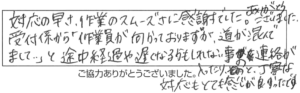 対応の早さ、作業のスムーズさに感謝でした。ありがとうございました。
受付係から「作業員が向かっておりますが、道が混んで
まして…」と途中経過や遅くなるかもしれない事の連絡が
ご協力ありがとうございました。入ったり、と、丁寧な
対応もとても感じが良かったです